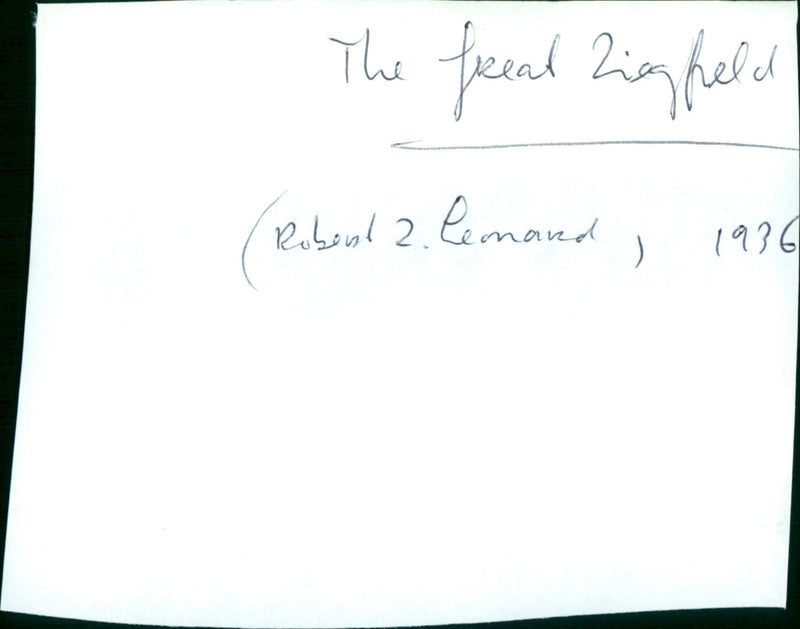 The Great Ziegfield
(Robert Z. Leonard, 1936